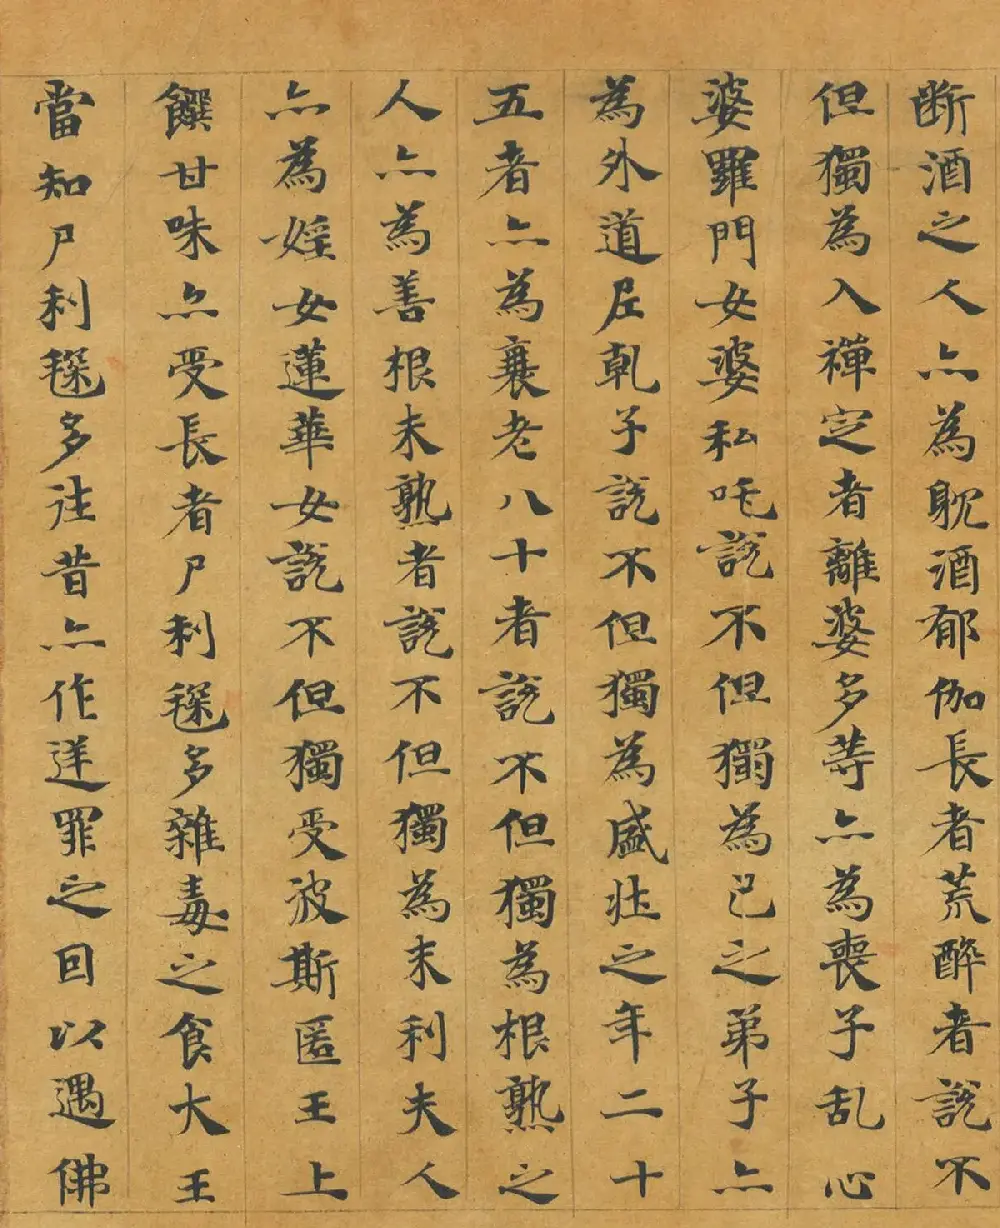 断酒之人亦為躭酒郁伽長者荒醉者說不
但獨為入禪定者離婆多等亦為喪子乱心
婆羅門女婆私吒說不但獨為己之弟子亦
為外道尼乹子說不但獨為盛壯之年二十
五者亦為衰老八十者說不但獨為根熟之
人亦為善根未熟者說不但獨為末利夫人
亦為婬女蓮華女說不但獨受波斯匿王上
饌甘味亦受長者尸利毱多雜毒之食大王
當知尸利毱多往昔亦作逆罪之因以遇佛